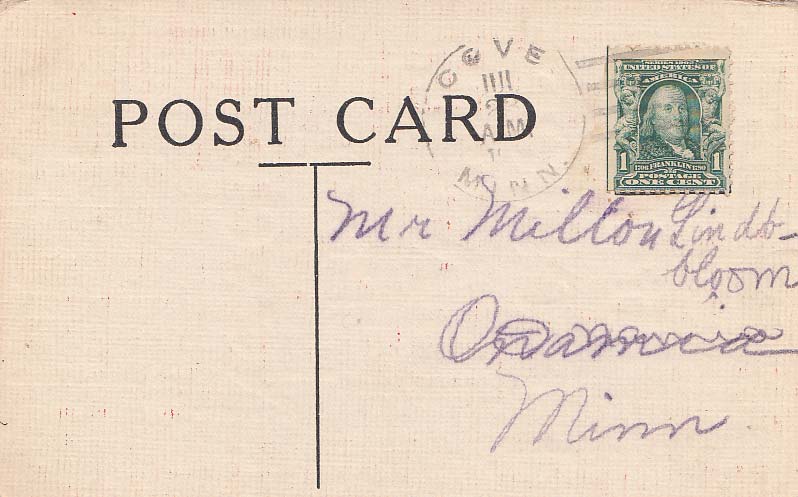 COVE
JUL
2
A.M.
MINN.
SERIES 1902
UNITED STATES OF
AMERICA
1706 FRANKLIN 1790
1 POSTAGE 1
ONE CENT
POST CARD
Mr Milton Lindb-
bloom
Onamia
Minn.